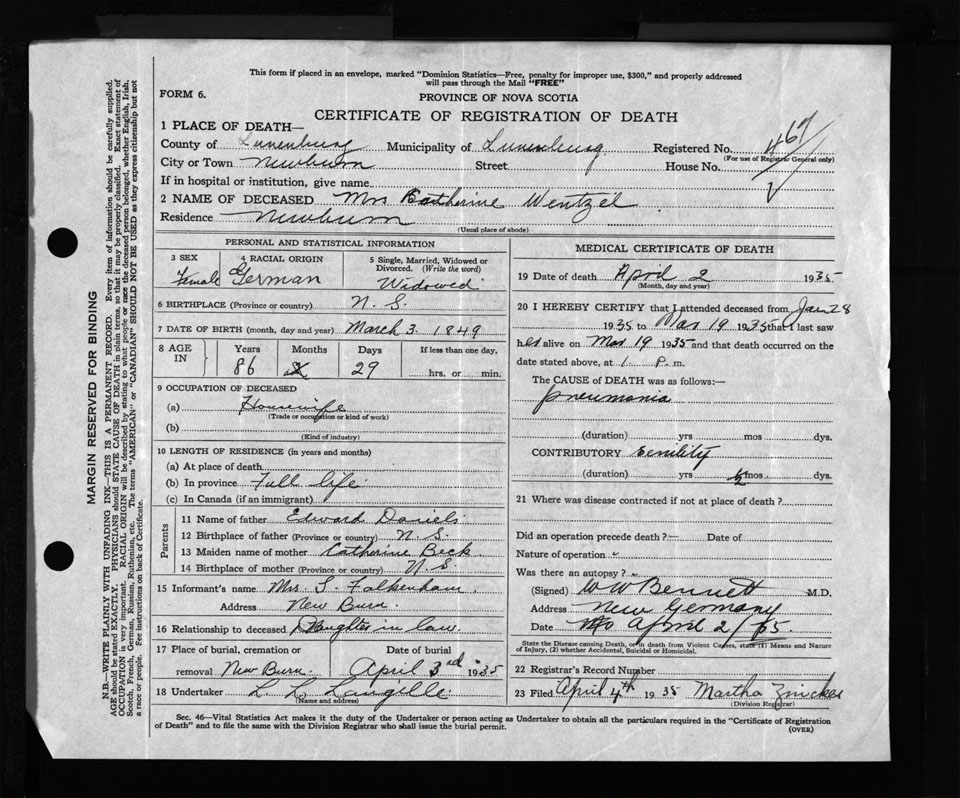 This form if placed in an envelope, marked "Dominion Statistics—Free, penalty for improper use, $300," and properly addressed
will pass through the Mail "FREE"
FORM 6.
PROVINCE OF NOVA SCOTIA
CERTIFICATE OF REGISTRATION OF DEATH
1 PLACE OF DEATH—
County of Lunenburg Municipality of Lunenburg Registered No. 467
(For use of Registrar General only)
City or Town Newburn Street House No.
If in hospital or institution, give name
2 NAME OF DECEASED Mrs Catherine Wentzel
Residence Newburn
(Usual place of abode)
PERSONAL AND STATISTICAL INFORMATION
3 SEX 4 RACIAL ORIGIN 5 Single, Married, Widowed or
Divorced. (Write the word)
Female German Widowed
6 BIRTHPLACE (Province or country) N. S.
7 DATE OF BIRTH (month, day and year) March 3. 1849
8 AGE IN Years Months Days If less than one day,
86 29 hrs. or min.
9 OCCUPATION OF DECEASED
(a) Housewife
(Trade or occupation or kind of work)
(b)
(Kind of industry)
10 LENGTH OF RESIDENCE (in years and months)
(a) At place of death
(b) In province Full life
(c) In Canada (if an immigrant)
Parents
11 Name of father Edward Daniels
12 Birthplace of father (Province or country) N. S.
13 Maiden name of mother Catherine Beck
14 Birthplace of mother (Province or country) N. S
15 Informant's name Mrs. S. Falkenham
Address New Burn.
16 Relationship to deceased Daughter in law
17 Place of burial, cremation or Date of burial
removal New Burn. April 3rd 1935
18 Undertaker L. L. Langille
(Name and address)
MEDICAL CERTIFICATE OF DEATH
19 Date of death April 2 1935
(Month, day and year)
20 I HEREBY CERTIFY that I attended deceased from Jan 28
1935 to Mar 19 1935 that I last saw
her alive on Mar 19 1935 and that death occurred on the
date stated above, at 1 P. m.
The CAUSE of DEATH was as follows:—
Pneumonia
(duration) yrs mos dys.
CONTRIBUTORY Senility
(duration) yrs mos dys.
21 Where was disease contracted if not at place of death?
Did an operation precede death?— Date of
Nature of operation
Was there an autopsy?
(Signed) W W Bennett M.D.
Address New Germany
Date April 2/35.
State the Disease causing Death, or in death from Violent Causes, state (1) Means and Nature
of Injury, (2) whether Accidental, Suicidal or Homicidal.
22 Registrar's Record Number
23 Filed April 4th 1935 Martha Zwicker
(Division Registrar)
Sec. 46—Vital Statistics Act makes it the duty of the Undertaker or person acting as Undertaker to obtain all the particulars required in the "Certificate of Registration
of Death" and to file the same with the Division Registrar who shall issue the burial permit.
(OVER)
MARGIN RESERVED FOR BINDING
N.B.—WRITE PLAINLY WITH UNFADING INK—THIS IS A PERMANENT RECORD. Every item of information should be carefully supplied.
AGE should be stated EXACTLY. PHYSICIANS should STATE CAUSE OF DEATH in plain terms, so that it may be properly classified. Exact statement of
OCCUPATION is very important. RACIAL ORIGIN will be described by stating to what people or race the deceased person belonged, whether English, Irish,
Scotch, French, German, Russian, Ruthenian, etc. The terms "AMERICAN" or "CANADIAN" SHOULD NOT BE USED as they express citizenship but not
a race or people. See instructions on back of Certificate.